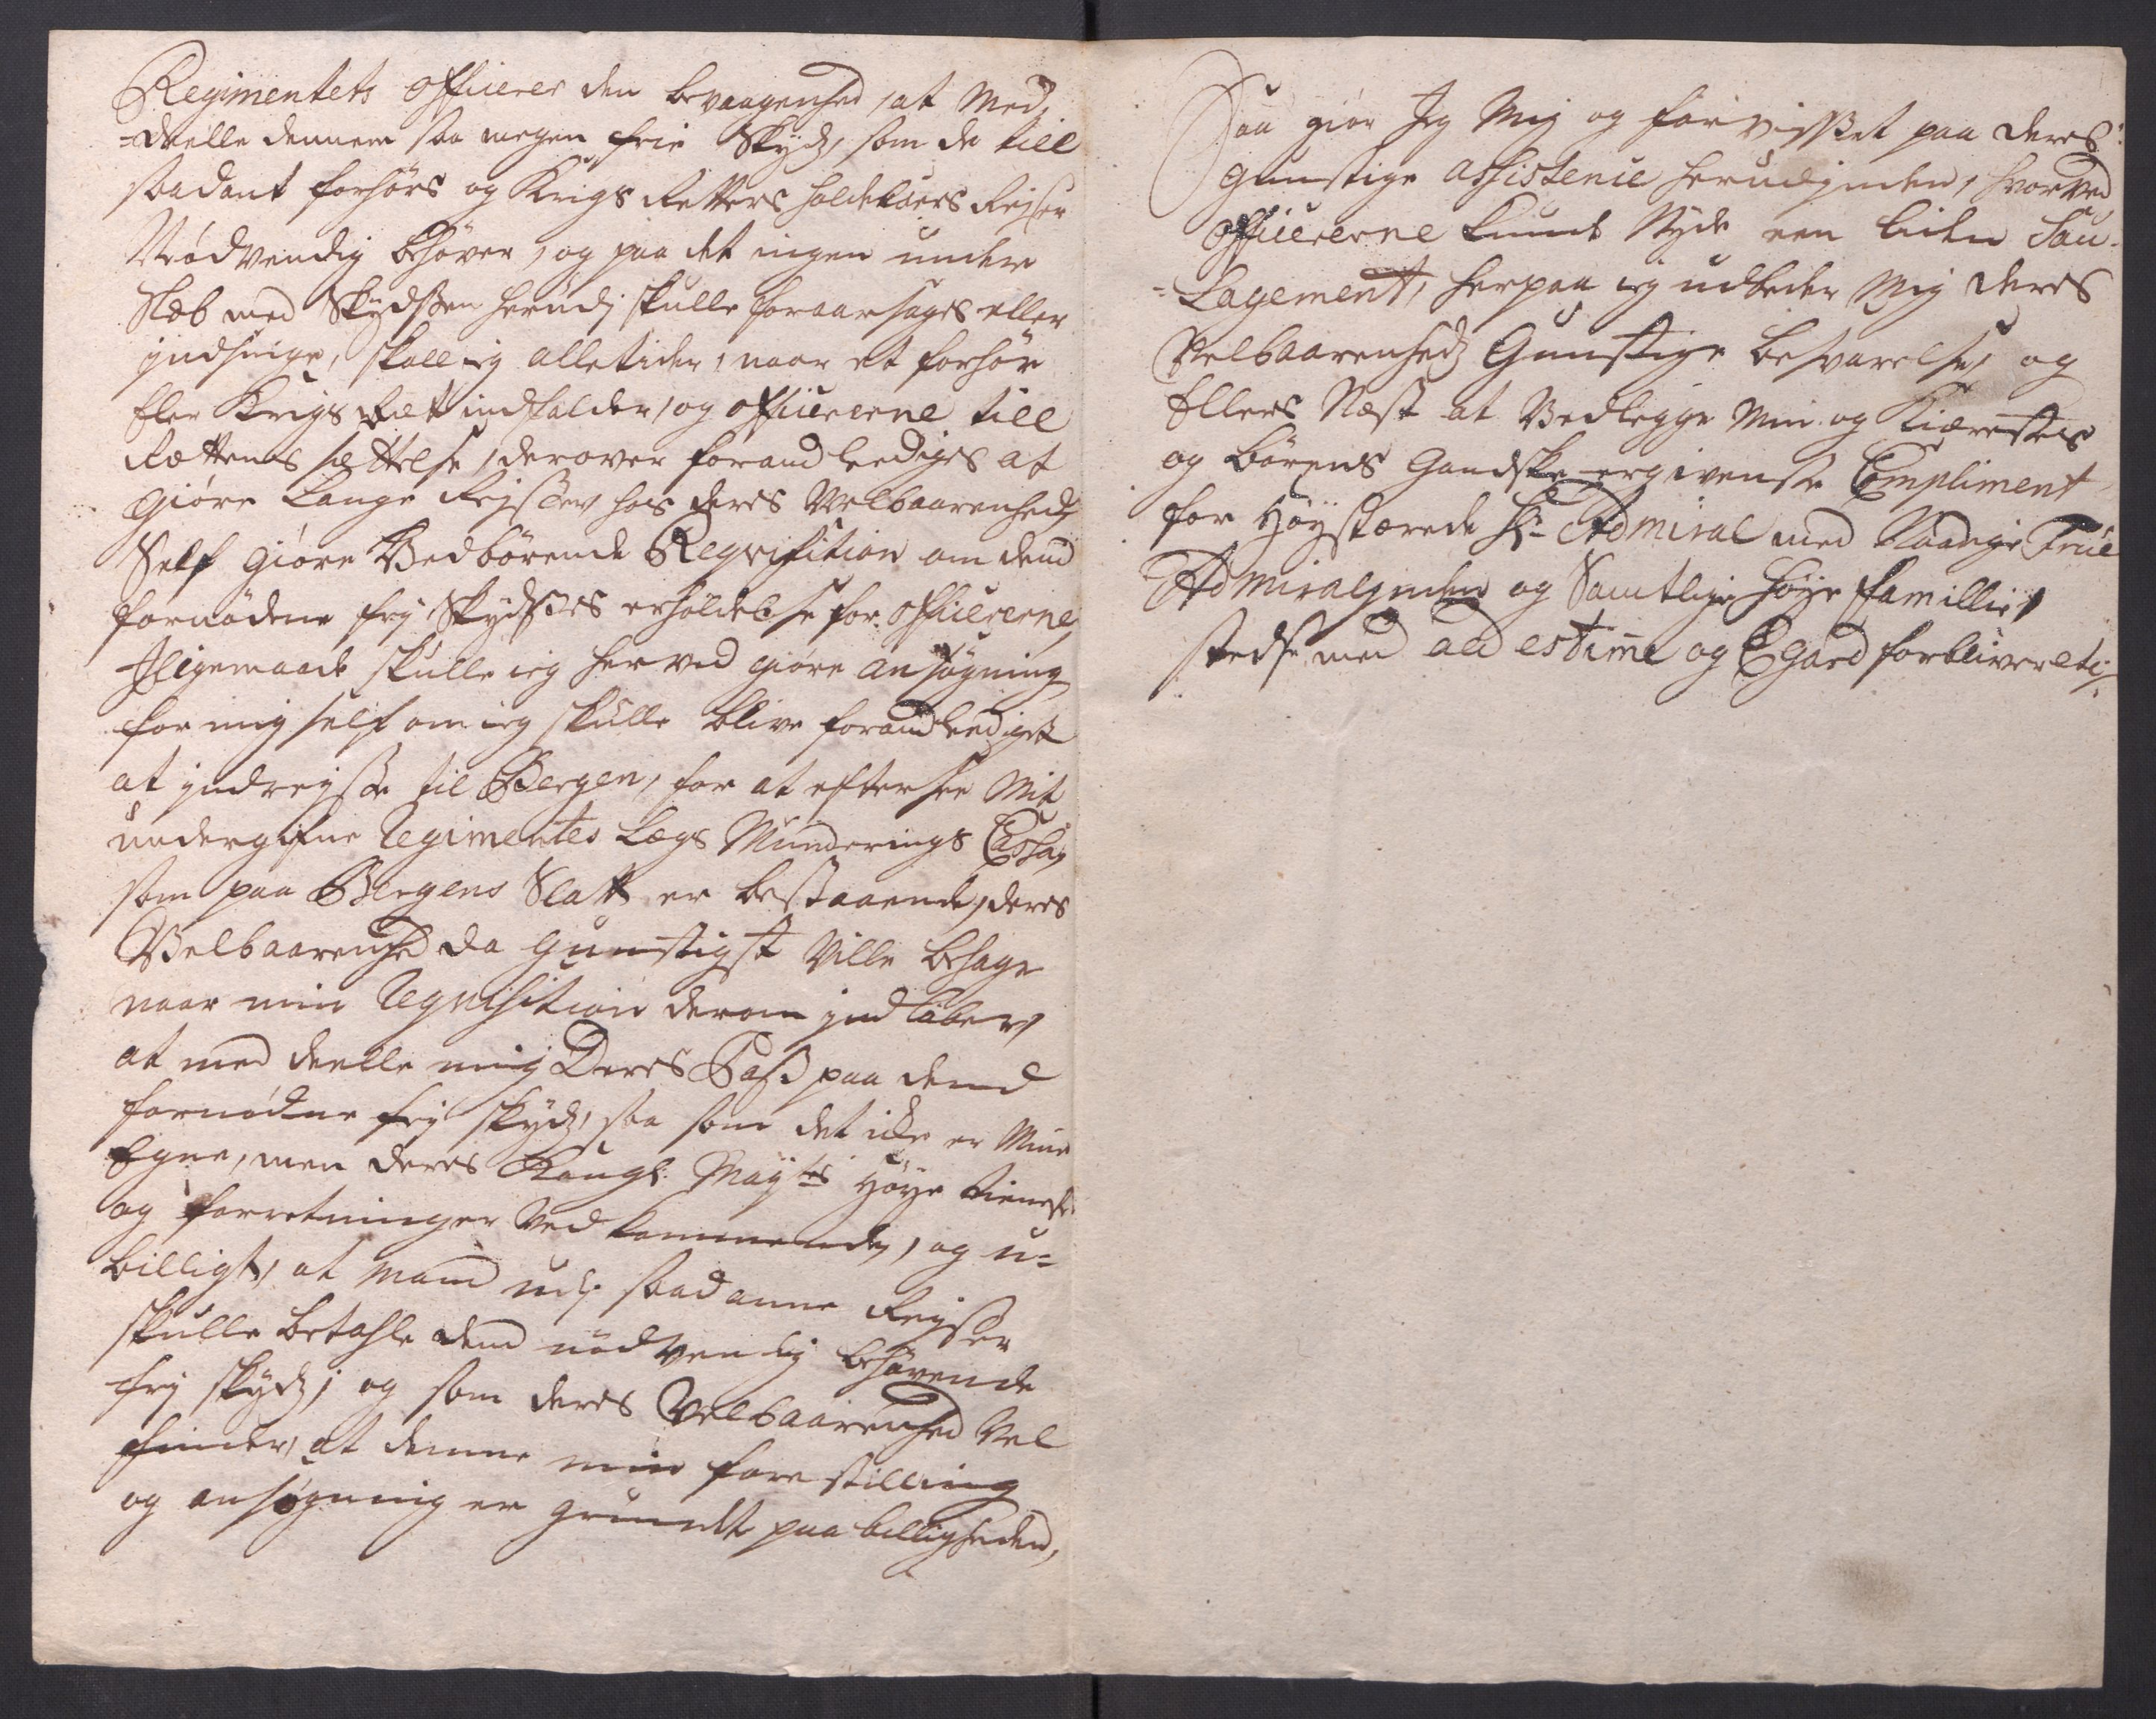 Regimentets officerer den bevaagenhed, at Med-
-deelle dennem saa megen frie Skyds, som de till
saadant forhörs og Krigs Retters holdelsers Rejser
Nödvendig behöver, og paa det ingen under
Slæb med Skydsen herudj skulle foraarsages eller
jndsnige, skall ieg alletider, naar et forhör
Eller Krigs Ræt indfalder, og officererne till
Rættens sættelse, derover foraandleediges at
giöre Lange Rejsser hos deres Velbaarenheds
Self giöre Vedbörende Reqvisition om dend
fornödene frj Skydses erholdelse for officererne,
Jligemaade skulle ieg herved giöre ansögning
for mig self om ieg skulle blive foraandleediget
at jndrejsse til Bergen, for at eftersee Mit
undergifne Regimentes Lægs Munderings Cassa,
som paa Bergens Slatt er bestaaende, deres
Velbaarenhed da gunstigst Ville behage
naar min Reqvisition derom jndlöber,
at med deelle mig Deres Pass paa dend
fornödne frj skyds, saa som det icke er Mine
Egne, men deres Kongl: Mayts Höye tieneste
og forretninger Ved kommende, og u-
billigt, at Mand udj saadanne Rejsser
skulle betahle dend nödvendig behövende
frj skyds; og som deres Velbaarenhed Vel
finder, at denne min fore stilling
og ansögning er grundet paa billigheden,
Saa giör Jeg Mig og forvisset paa deres
gunstige assistence herudjnden, hvorved
officererne kunde Nyde een liden Sou-
-Lagement, herpaa ieg udbeder Mig deres
Velbaarenheds Gunstige besvarelse, og
Ellers Næst at Vedlegge Min og Kiærestes
og börns Gandske ergivenste Compliment
for Höystærede Hr Admiral med Naadige Frue
Admiraljnden og Samtlige höye famillie,
stedse med all estime og Egard forbliver etc: